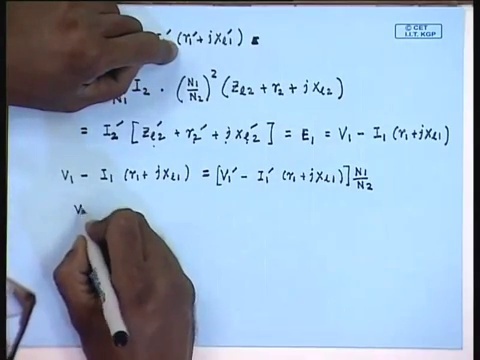 © CET
I.I.T. KGP
I₁′ (r₁′ + jxℓ₁′)
N₁ I₂ · (N₁/N₂)² (Zℓ₂ + r₂ + jxℓ₂)
= I₂′ [Zℓ₂′ + r₂′ + jxℓ₂′] = E₁ = V₁ − I₁ (r₁ + jxℓ₁)
V₁ − I₁ (r₁ + jxℓ₁) = [V₁′ − I₁′ (r₁ + jxℓ₁)] N₁/N₂